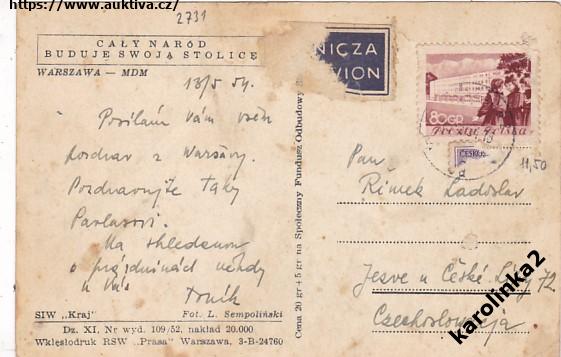 https://www.auktiva.cz/
2731
CAŁY NARÓD
BUDUJE SWOJĄ STOLICĘ
WARSZAWA — MDM
NICZA
VION
13/5 54.
Posílám Vám všem
pozdrav z Waršavy.
Pozdravujte taky
Na shledanou
o prázdninách někdy
u Vás
80 GR
Poczta Polska
ČESKO
11,50
Pan
Rimek Ladislav
Jesve u České Lípy 72
Czechoslowacja
Cena 20 gr + 5 gr na Społeczny Fundusz Odbudowy
SIW „Kraj" Fot. L. Sempoliński
Dz. XI, Nr wyd. 109/52, nakład 20.000
Wklęsłodruk RSW „Prasa" Warszawa, 3-B-24760
karolinka2